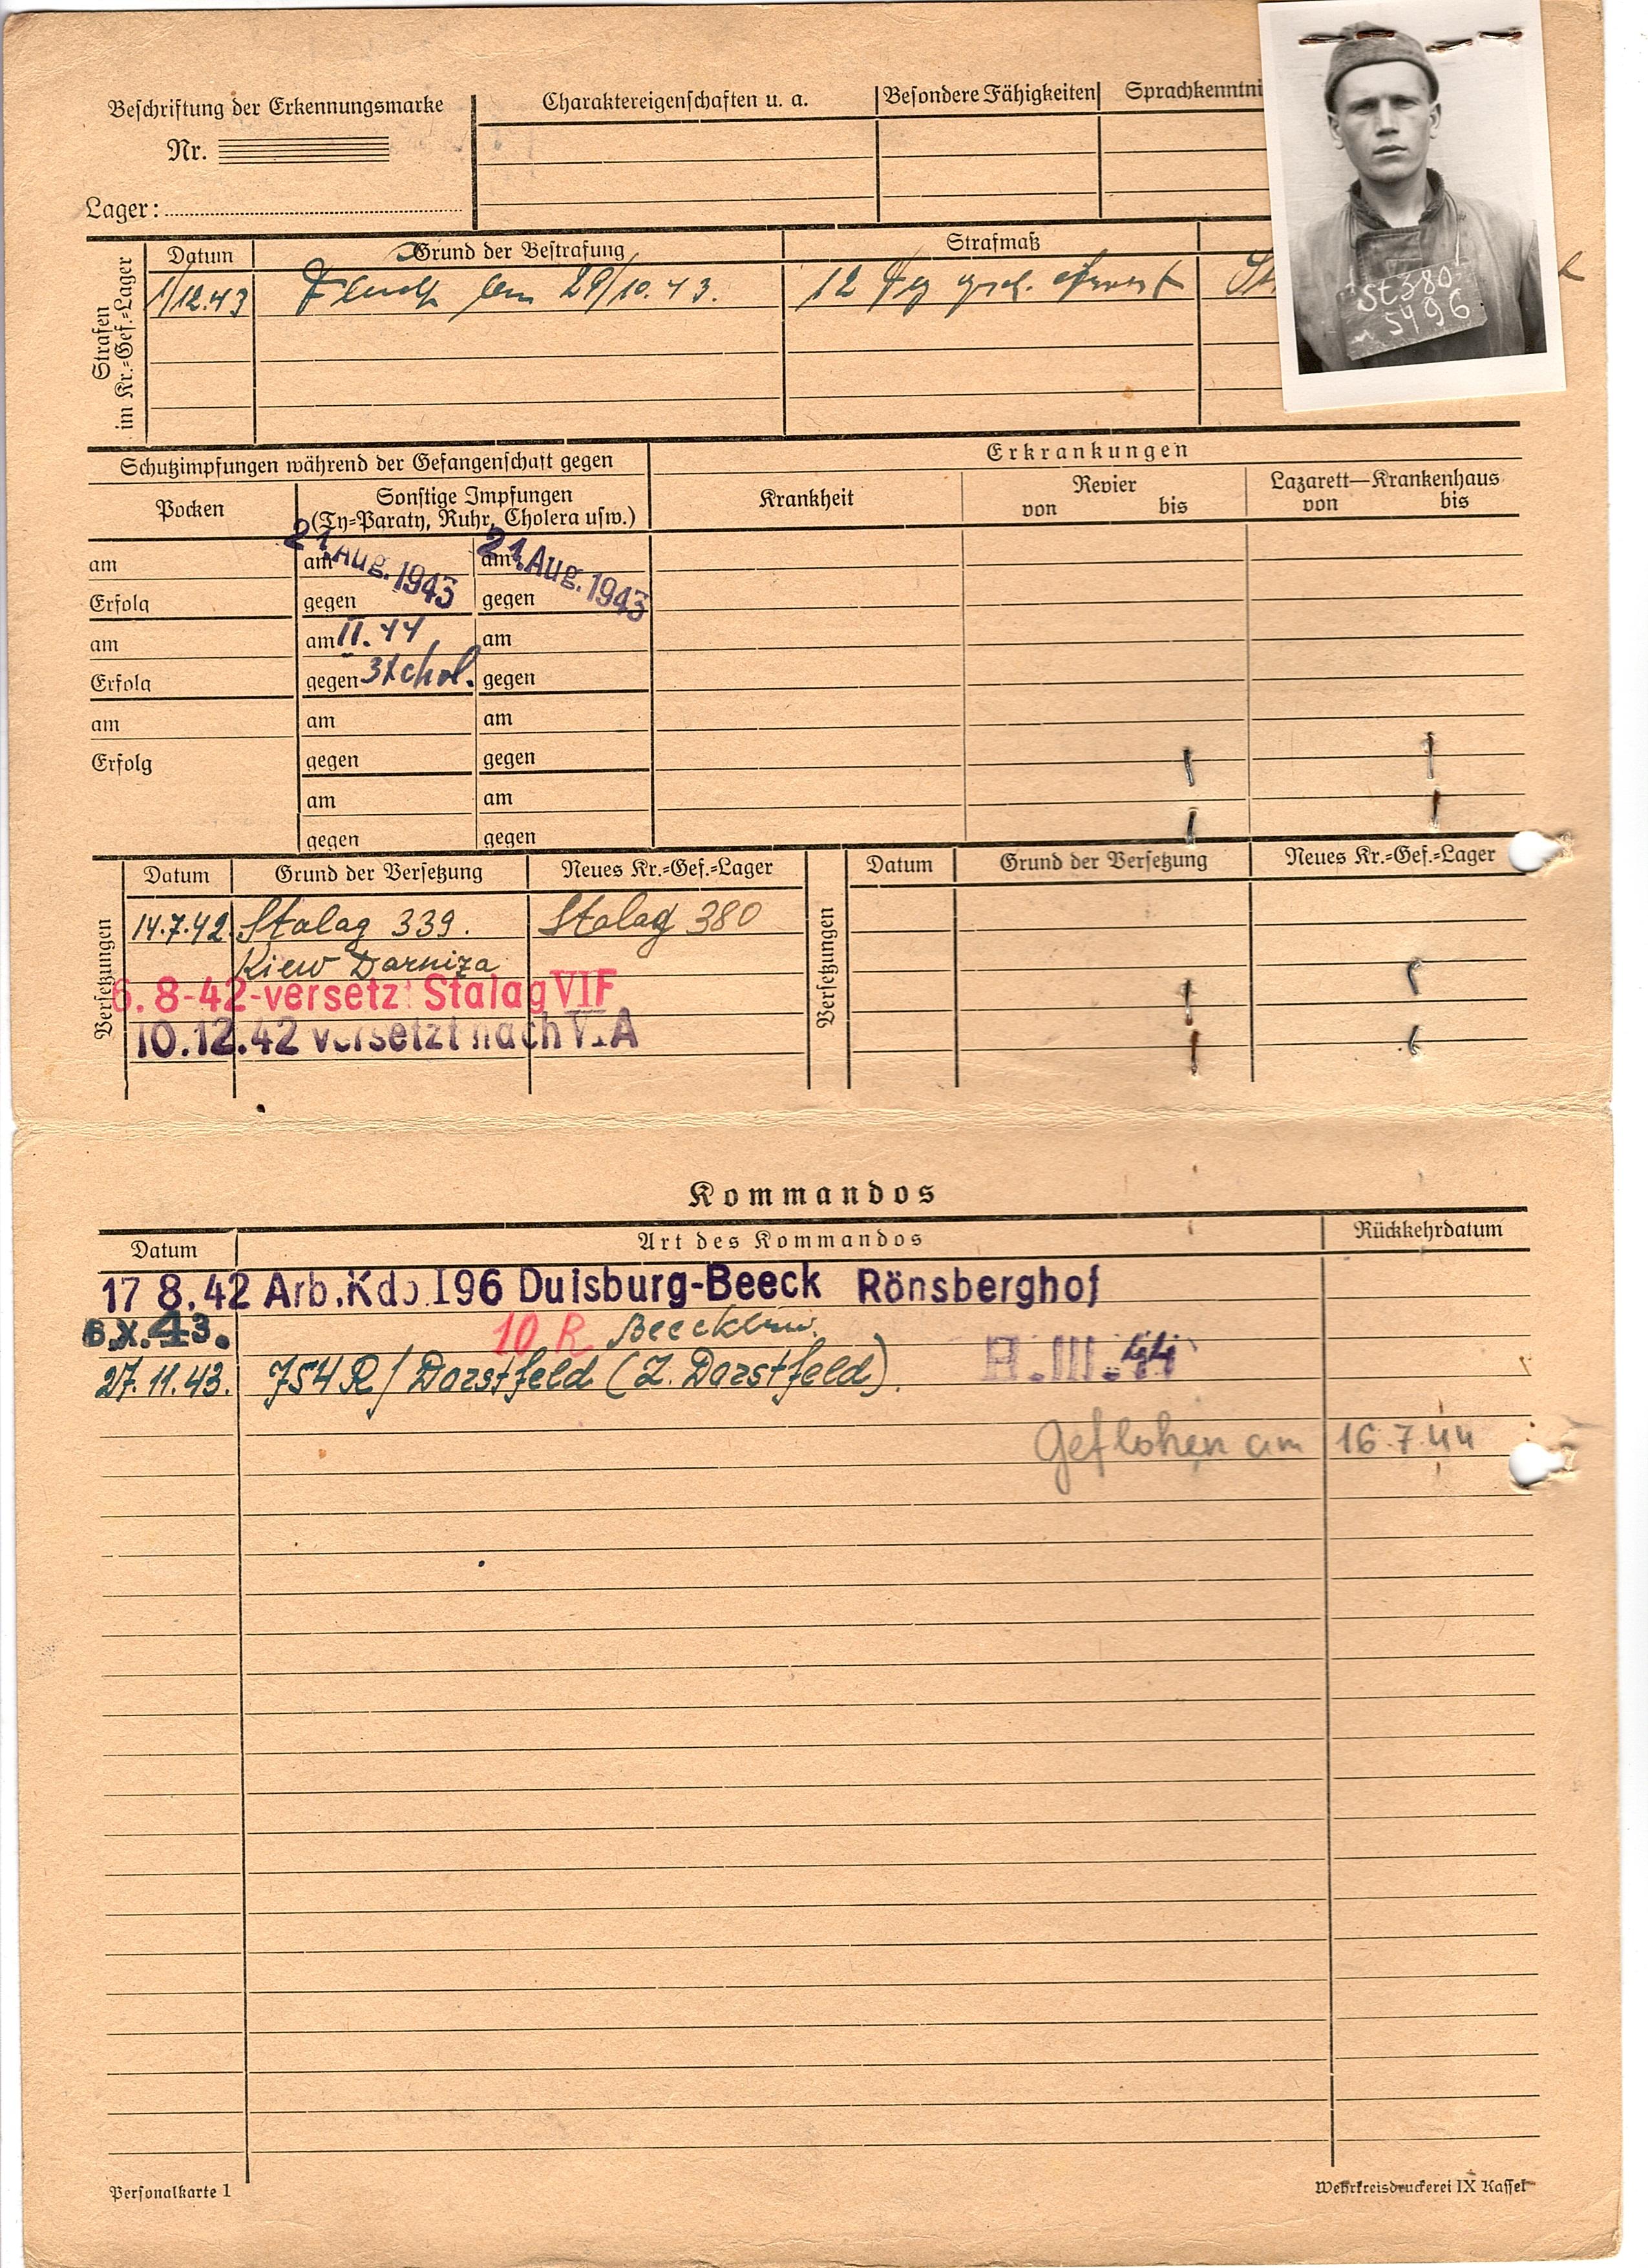 Beschriftung der Erkennungsmarke
Nr.
Lager:
Charaktereigenschaften u. a.
Besondere Fähigkeiten
Sprachkenntni
St 380
5496
Strafen
im Kr.=Gef.=Lager
Datum Grund der Bestrafung Strafmaß
1/12.43 Flucht am 29/10.43. 12 Tg gesch. Arrest
Schutzimpfungen während der Gefangenschaft gegen
Pocken
Sonstige Impfungen
(Ty=Paraty, Ruhr, Cholera usw.)
am am 21. Aug. 1943 am 21. Aug. 1943
Erfolg gegen gegen
am am II. 44 am
Erfolg gegen 3x chol. gegen
am am am
Erfolg gegen gegen
am am
gegen gegen
Erkrankungen
Krankheit
Revier
von bis
Lazarett—Krankenhaus
von bis
Versetzungen
Datum Grund der Versetzung Neues Kr.=Gef.=Lager
14.7.42 Stalag 339. Stalag 380
Kiew Darniza
6. 8-42-versetzt Stalag VIF
10.12.42 versetzt nach VIA
Versetzungen
Datum Grund der Versetzung Neues Kr.=Gef.=Lager
Kommandos
Datum Art des Kommandos Rückkehrdatum
17 8.42 Arb.Kdo.I96 Duisburg-Beeck Rönsberghof
6.X.43. 10 R
27.11.43. 754 R/ Dorstfeld (Z. Dorstfeld). III.44
Geflohen am 16.7.44
Personalkarte 1
Wehrkreisdruckerei IX Kassel